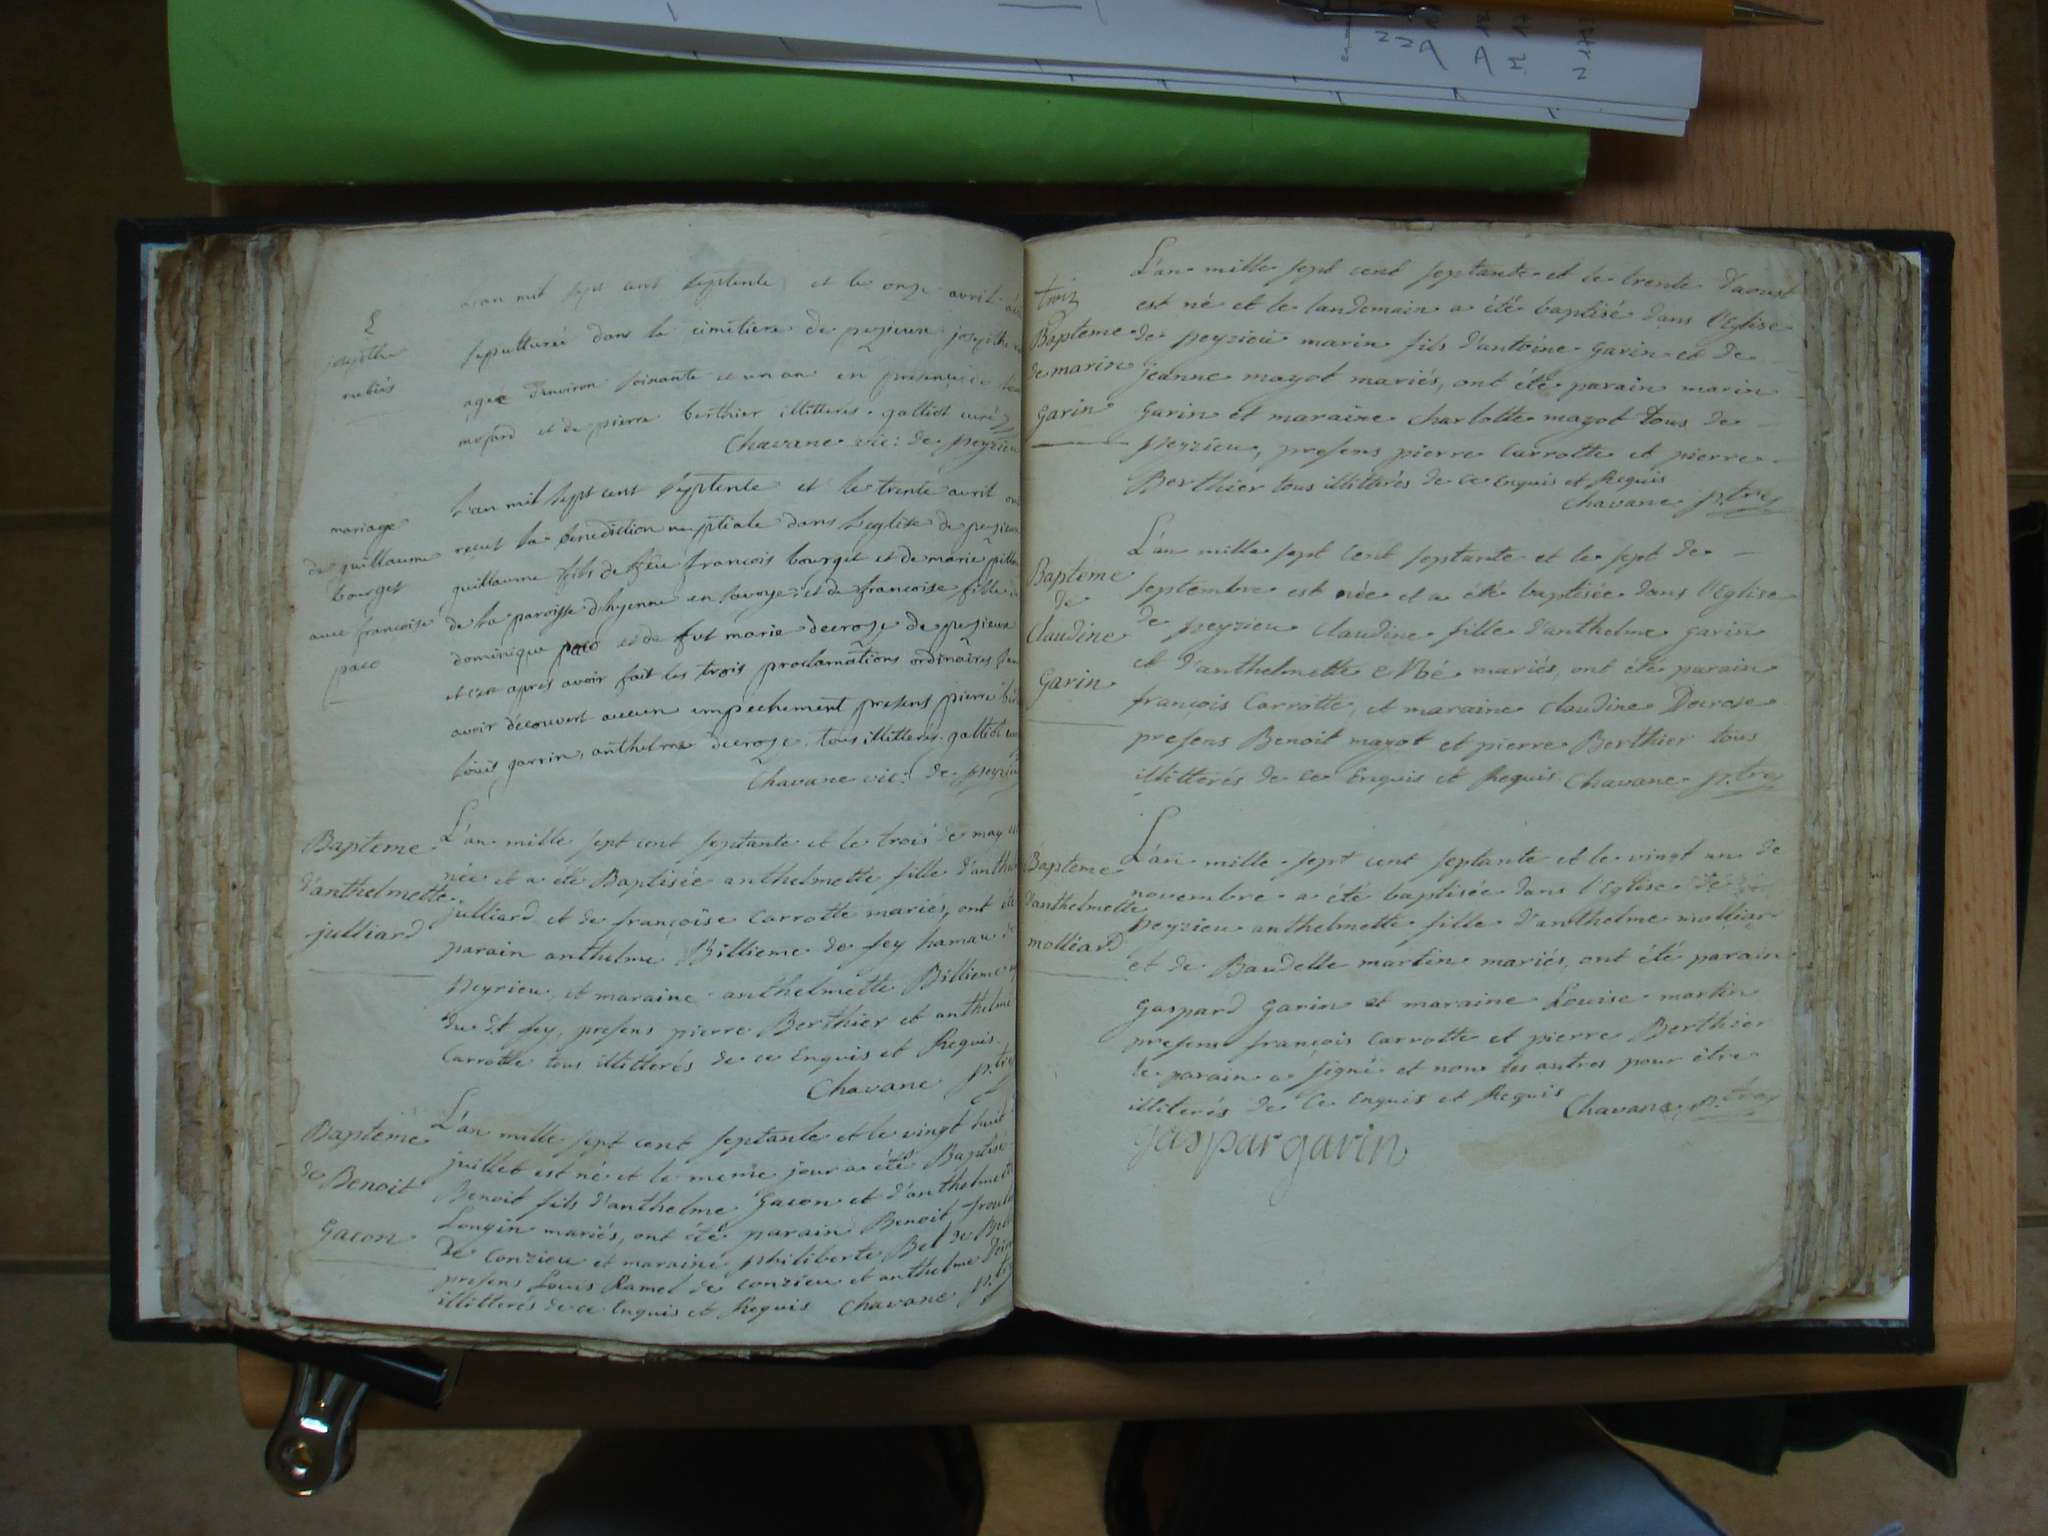 josepthe
l'an mil sept cent septente et le onze avril a été
sepulturée dans le cimetière de peyzieux josepthe
agée d'environ soixante et un an en présence de
et de pierre berthier illitterés. galliot curé
Chavane vic: de peyzieu
mariage
de guillaume
bourget
avec françoise
paco
L'an mil sept cent septente et le trente avril ont
recut la benediction nuptiale dans l'eglise de
guillaume fils de feu françois bourget et de marie
de la paroisse d'hyenne en savoye: et de françoise fille
dominique paco et de fut marie decrose de
et c'est apres avoir fait les trois proclamations ordinaires
avoir découvert aucun empechement presens pierre
louis garrin, anthelme decrose, tous illitterés. galliot curé
Chavane vic: de peyzieu
Bapteme
d'anthelmette
julliard
L'an mille sept cent septante et le trois de may
née et a été Baptisée anthelmette fille d'anthelme
julliard et de françoise Carrotte mariés, ont été
parain anthelme Billieme de fey hamau
peyrieu, et maraine anthelmette Billieme
du dt fey, presens pierre Berthier et anthelme
Carrotte tous illitterés de ce Enquis et Requis
Chavane p.tre
Bapteme
de Benoit
Gacon
L'an mille sept cent septante et le vingt huit
juillet est né et le meme jour a été Baptisé
Benoit fils d'anthelme Gacon et d'anthelmette
Longin mariés, ont été parain Benoit
de Conzieu et maraine philiberte Bel de
presens Louis Ramel de conzieu et anthelme
illitterés de ce Enquis et Requis Chavane p.tre
Bapteme
de marin
Garin
L'an mille sept cent septante et le trente d'aoust
est né et le landemain a été baptisé dans l'Eglise
de peyzieu marin fils d'antoine garin et de
jeanne mayot mariés, ont été parain marin
Garin et maraine Charlotte mayot tous de
peyzieu, presens pierre Carrotte et pierre
Berthier tous illitterés de ce Enquis et Requis
Chavane p.tre
Bapteme
de
Claudine
Garin
L'an mille sept cent septante et le sept de
septembre est née et a été baptisée dans l'Eglise
de peyzieu Claudine fille d'anthelme garin
et d'anthelmette mariés, ont été parain
françois Carrotte, et maraine Claudine Decrose
presens Benoit mayot et pierre Berthier tous
illitterés de ce Enquis et Requis Chavane p.tre
Bapteme
d'anthelmette
molliard
L'an mille sept cent septante et le vingt un de
novembre a été baptisée dans l'Eglise de
peyzieu anthelmette fille d'anthelme molliar
et de Baudelle martin mariés, ont été parain
Gaspard Garin et maraine Louise martin
presens françois Carrotte et pierre Berthier
le parain a signé et non les autres pour être
illiterés de Ce Enquis et Requis Chavane p.tre
gaspar garin